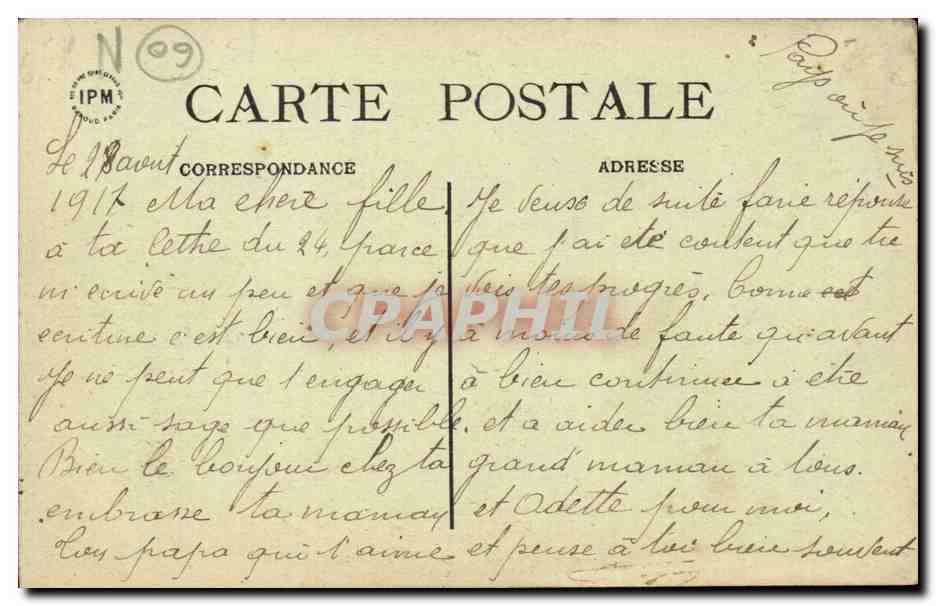 N 09
IPM
Pays où je suis
CARTE POSTALE
CORRESPONDANCE
ADRESSE
Le 28 aout
1917 Ma chere fille, Je veuse de suite farie réponse
à ta lethe du 24, parce que j'ai eté content que tu
m ecrive un peu et que je vois tes progrès. Come
ecriture c est bien, et il y à moins de faute qu avant
Je ne peut que t engager à bien continuer à etre
aussi sage que possible. et a aider bien ta maman
Bien le bonjour chez ta grand maman à tous.
embrasse ta maman et Odette pour moi,
Ton papa qui t'aime et pense à toi bien souvent
CPAPHIL